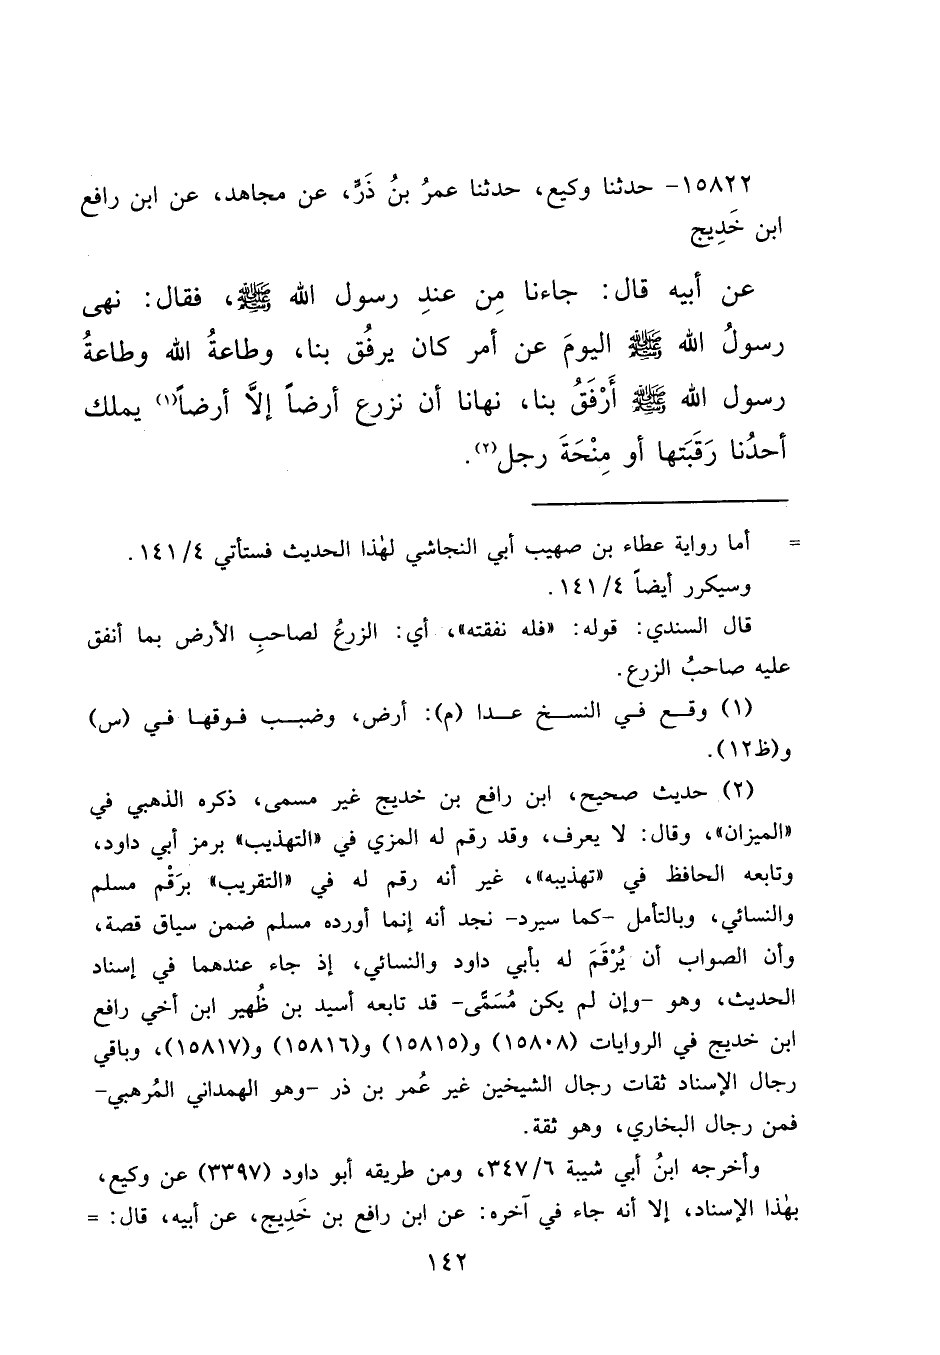 ١٥٨٢٢- حدثنا وكيع، حدثنا عمرُ بنُ ذَرٍّ، عن مجاهد، عن ابن رافع
ابن خَدِيج
عن أبيه قال: جاءنا مِن عندِ رسول الله ﷺ، فقال: نهى
رسولُ الله ﷺ اليومَ عن أمر كان يرفُق بنا، وطاعةُ الله وطاعةُ
رسول الله ﷺ أَرْفَقُ بنا، نهانا أن نزرع أرضاً إلاَّ أرضاً(١) يملك
أحدُنا رَقَبَتها أو مِنْحَةَ رجل(٢).
= أما رواية عطاء بن صهيب أبي النجاشي لهٰذا الحديث فستأتي ١٤١/٤.
وسيكرر أيضاً ١٤١/٤.
قال السندي: قوله: «فله نفقته»، أي: الزرعُ لصاحبِ الأرض بما أنفق
عليه صاحبُ الزرع.
(١) وقع في النسخ عدا (م): أرض، وضبب فوقها في (س)
و(ظ١٢).
(٢) حديث صحيح، ابن رافع بن خديج غير مسمى، ذكره الذهبي في
«الميزان»، وقال: لا يعرف، وقد رقم له المزي في «التهذيب» برمز أبي داود،
وتابعه الحافظ في «تهذيبه»، غير أنه رقم له في «التقريب» برَقْم مسلم
والنسائي، وبالتأمل -كما سيرد- نجد أنه إنما أورده مسلم ضمن سياق قصة،
وأن الصواب أن يُرْقَمَ له بأبي داود والنسائي، إذ جاء عندهما في إسناد
الحديث، وهو -وإن لم يكن مُسَمًّى- قد تابعه أسيد بن ظُهير ابن أخي رافع
ابن خديج في الروايات (١٥٨٠٨) و(١٥٨١٥) و(١٥٨١٦) و(١٥٨١٧)، وباقي
رجال الإسناد ثقات رجال الشيخين غير عُمر بن ذر -وهو الهمداني المُرهبي-
فمن رجال البخاري، وهو ثقة.
وأخرجه ابنُ أبي شيبة ٣٤٧/٦، ومن طريقه أبو داود (٣٣٩٧) عن وكيع،
بهٰذا الإسناد، إلا أنه جاء في آخره: عن ابن رافع بن خَدِيج، عن أبيه، قال: =
١٤٢